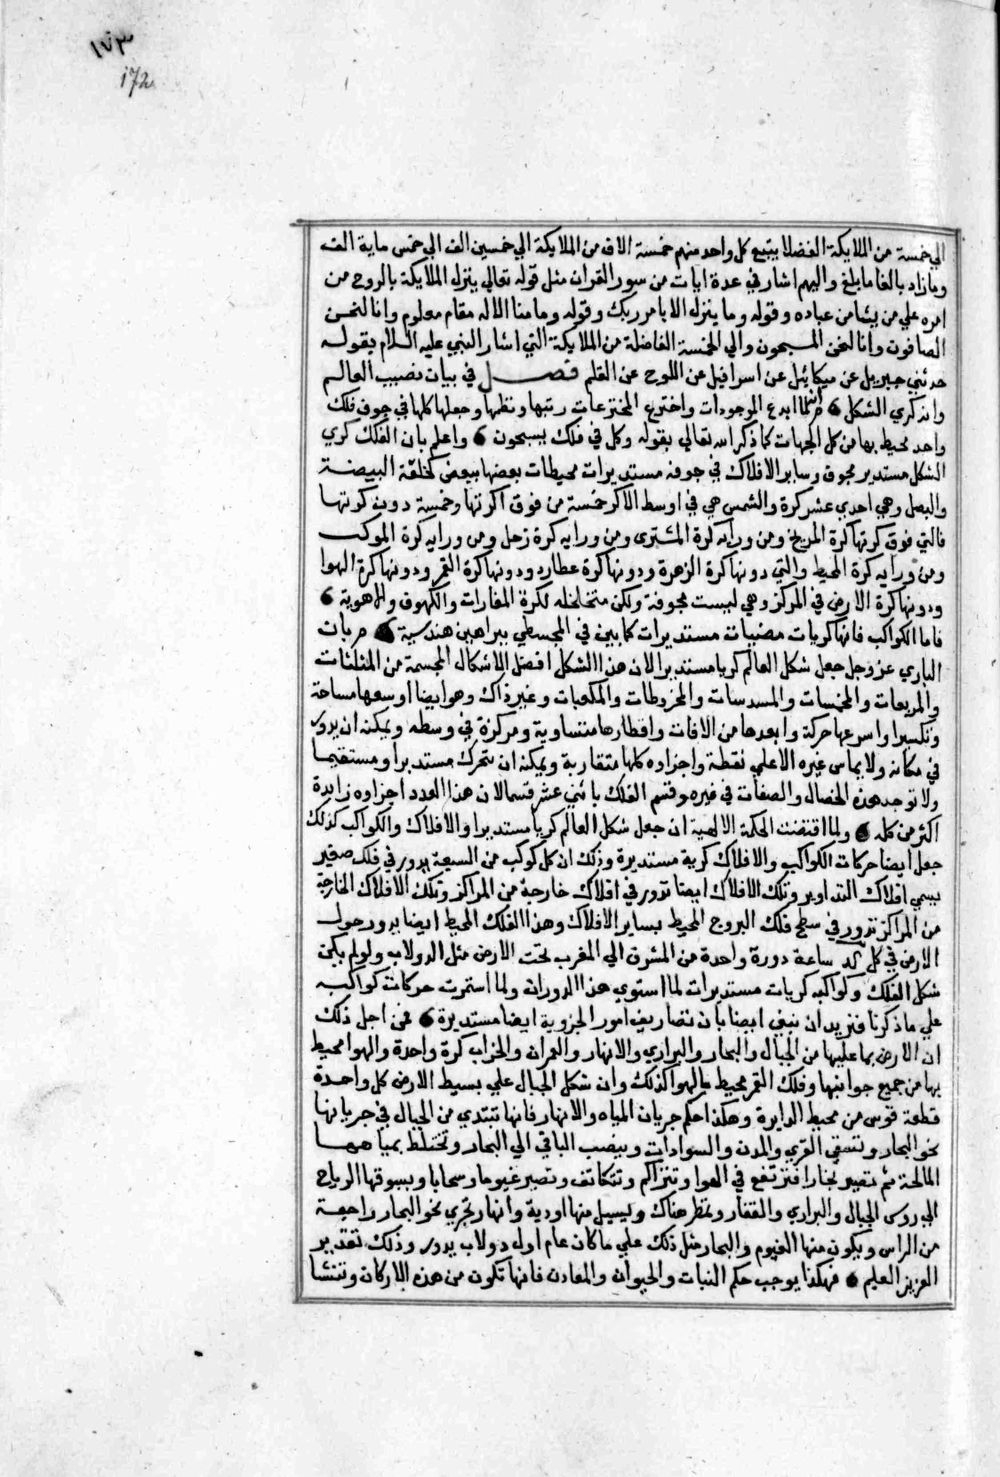 ١٧٣
172
الي خمسة من الملايكة الفضلا يتبع كل واحد منهم خمسة الاف من الملايكة الي خمسين الف الي خمس ماية الف
وما زاد بالغا ما بلغ واليهم اشار في عدة ايات من سور القران مثل قوله تعالي ينزل الملايكة بالروح من
امره علي من يشا من عباده وقوله وما يتنزل الا بامر ربك وقوله وما منا الا له مقام معلوم وانا لنحن
الصافون وانا لنحن المسبحون والي الخمسة الفاضلة من الملايكة التي اشار النبي عليه السلام بقوله
حدثني جبريل عن ميكائيل عن اسرافيل عن اللوح عن القلم فصل في بيان نضيد العالم
وانه كري الشكل ثم لما ابدع الموجودات واخترع المخترعات رتبها ونظمها وجعلها كلها في جوف فلك
واحد محيط بها من كل الجهات كما ذكر الله تعالي بقوله وكل في فلك يسبحون واعلم بان الفلك كري
الشكل مستدير مجوف وساير الافلاك في جوفه مستديرات محيطات بعضها ببعض كحلقة البيضة
والبصل وهي احدي عشر كرة والشمس هي في اوسط الاكر خمسة من فوق اكرتها وخمسة دون كرتها
فالتي فوق كرتها كرة المريخ ومن ورايه كرة المشتري ومن ورايه كرة زحل ومن ورايه كرة الموكب
ومن ورايه كرة المحيط والتي دونها كرة الزهرة ودونها كرة عطارد ودونها كرة القمر ودونها كرة الهوا
ودونها كرة الارض في المركز وهي ليست مجوفة ولكن متخلخله لكرة المغارات والكهوف والاهوية
فاما الكواكب فانها كريات مضيات مستديرات كما بين في المجسطي ببراهين هندسية ثم بان
الباري عز وجل جعل شكل العالم كريا مستديرا لان هذا الشكل افضل الاشكال المجسمة من المثلثات
والمربعات والمخمسات والمسدسات والمخروطات والمكعبات وغير ذاك وهو ايضا اوسعها مساحة
وتكسيرا واسرعها حركة وابعدها من الافات واقطارها متساوية ومركزة في وسطه ويمكنه ان يدور
في مكانه ولا يماس غيره الا علي نقطة واجزاوه كلها متقاربة ويمكنه ان يتحرك مستديرا ومستقيما
ولا توجد هذه الخصال والصفات في غيره وقسم الفلك باثني عشر قسما لان هذا العدد اجزاوه زايدة
اكثر من كله ولما اقتضت الحكمة الالهية ان جعل شكل العالم كريا مستديرا والافلاك والكواكب كذلك
جعل ايضا حركات الكواكب والافلاك كرية مستديرة وذلك ان كل كوكب من السبعة يدور في فلك صغير
يسمي افلاك التداوير وتلك الافلاك ايضا تدور في افلاك خارجة من المراكز وتلك الافلاك الخارجة
من المراكز تدور في سطح فلك البروج المحيط بساير الافلاك وهذا الفلك المحيط ايضا يدور حول
الارض في كل كد ساعة دورة واحدة من المشرق الي المغرب تحت الارض مثل الدولاب ولو لم يكن
شكل الفلك وكواكبه كريات مستديرات لما استوي هذا الدوران ولما استمرت حركات كواكبه
علي ما ذكرنا فنريد ان نبين ايضا بان تصاريف امور الجزوية ايضا مستديرة فمن اجل ذلك
ان الارض بما عليها من الجبال والبحار والبراري والانهار والعمران والخراب كرة واحدة والهوا محيط
بها من جميع جوانبها وفلك القمر محيط بالهوا كذلك وان شكل الجبال علي بسيط الارض كل واحدة
قطعة قوس من محيط الدايرة وهكذا حكم جريان المياه والانهار فانها تبتدي من الجبال في جريانها
نحو البحار وتسقي القري والمدن والسوادات وينصب الباقي الي البحار وتختلط بمياهها
المالحة ثم تصير بخارا فترتفع في الهوا وتتراكم وتتكاثف وتصير غيوما وسحابا ويسوقها الرياح
الي روس الجبال والبراري والقفار وتمطر هناك وليسيل منها اودية وانهار تجري نحو البحار راجعة
من الراس ويكون منها الغيوم والبحار مثل ذلك علي ما كان عام اول دولاب يدور وذلك تقدير
العزيز العليم فهكذا يوجب حكم النبات والحيوان والمعادن فانها تكون من هذه الاركان وتنشا